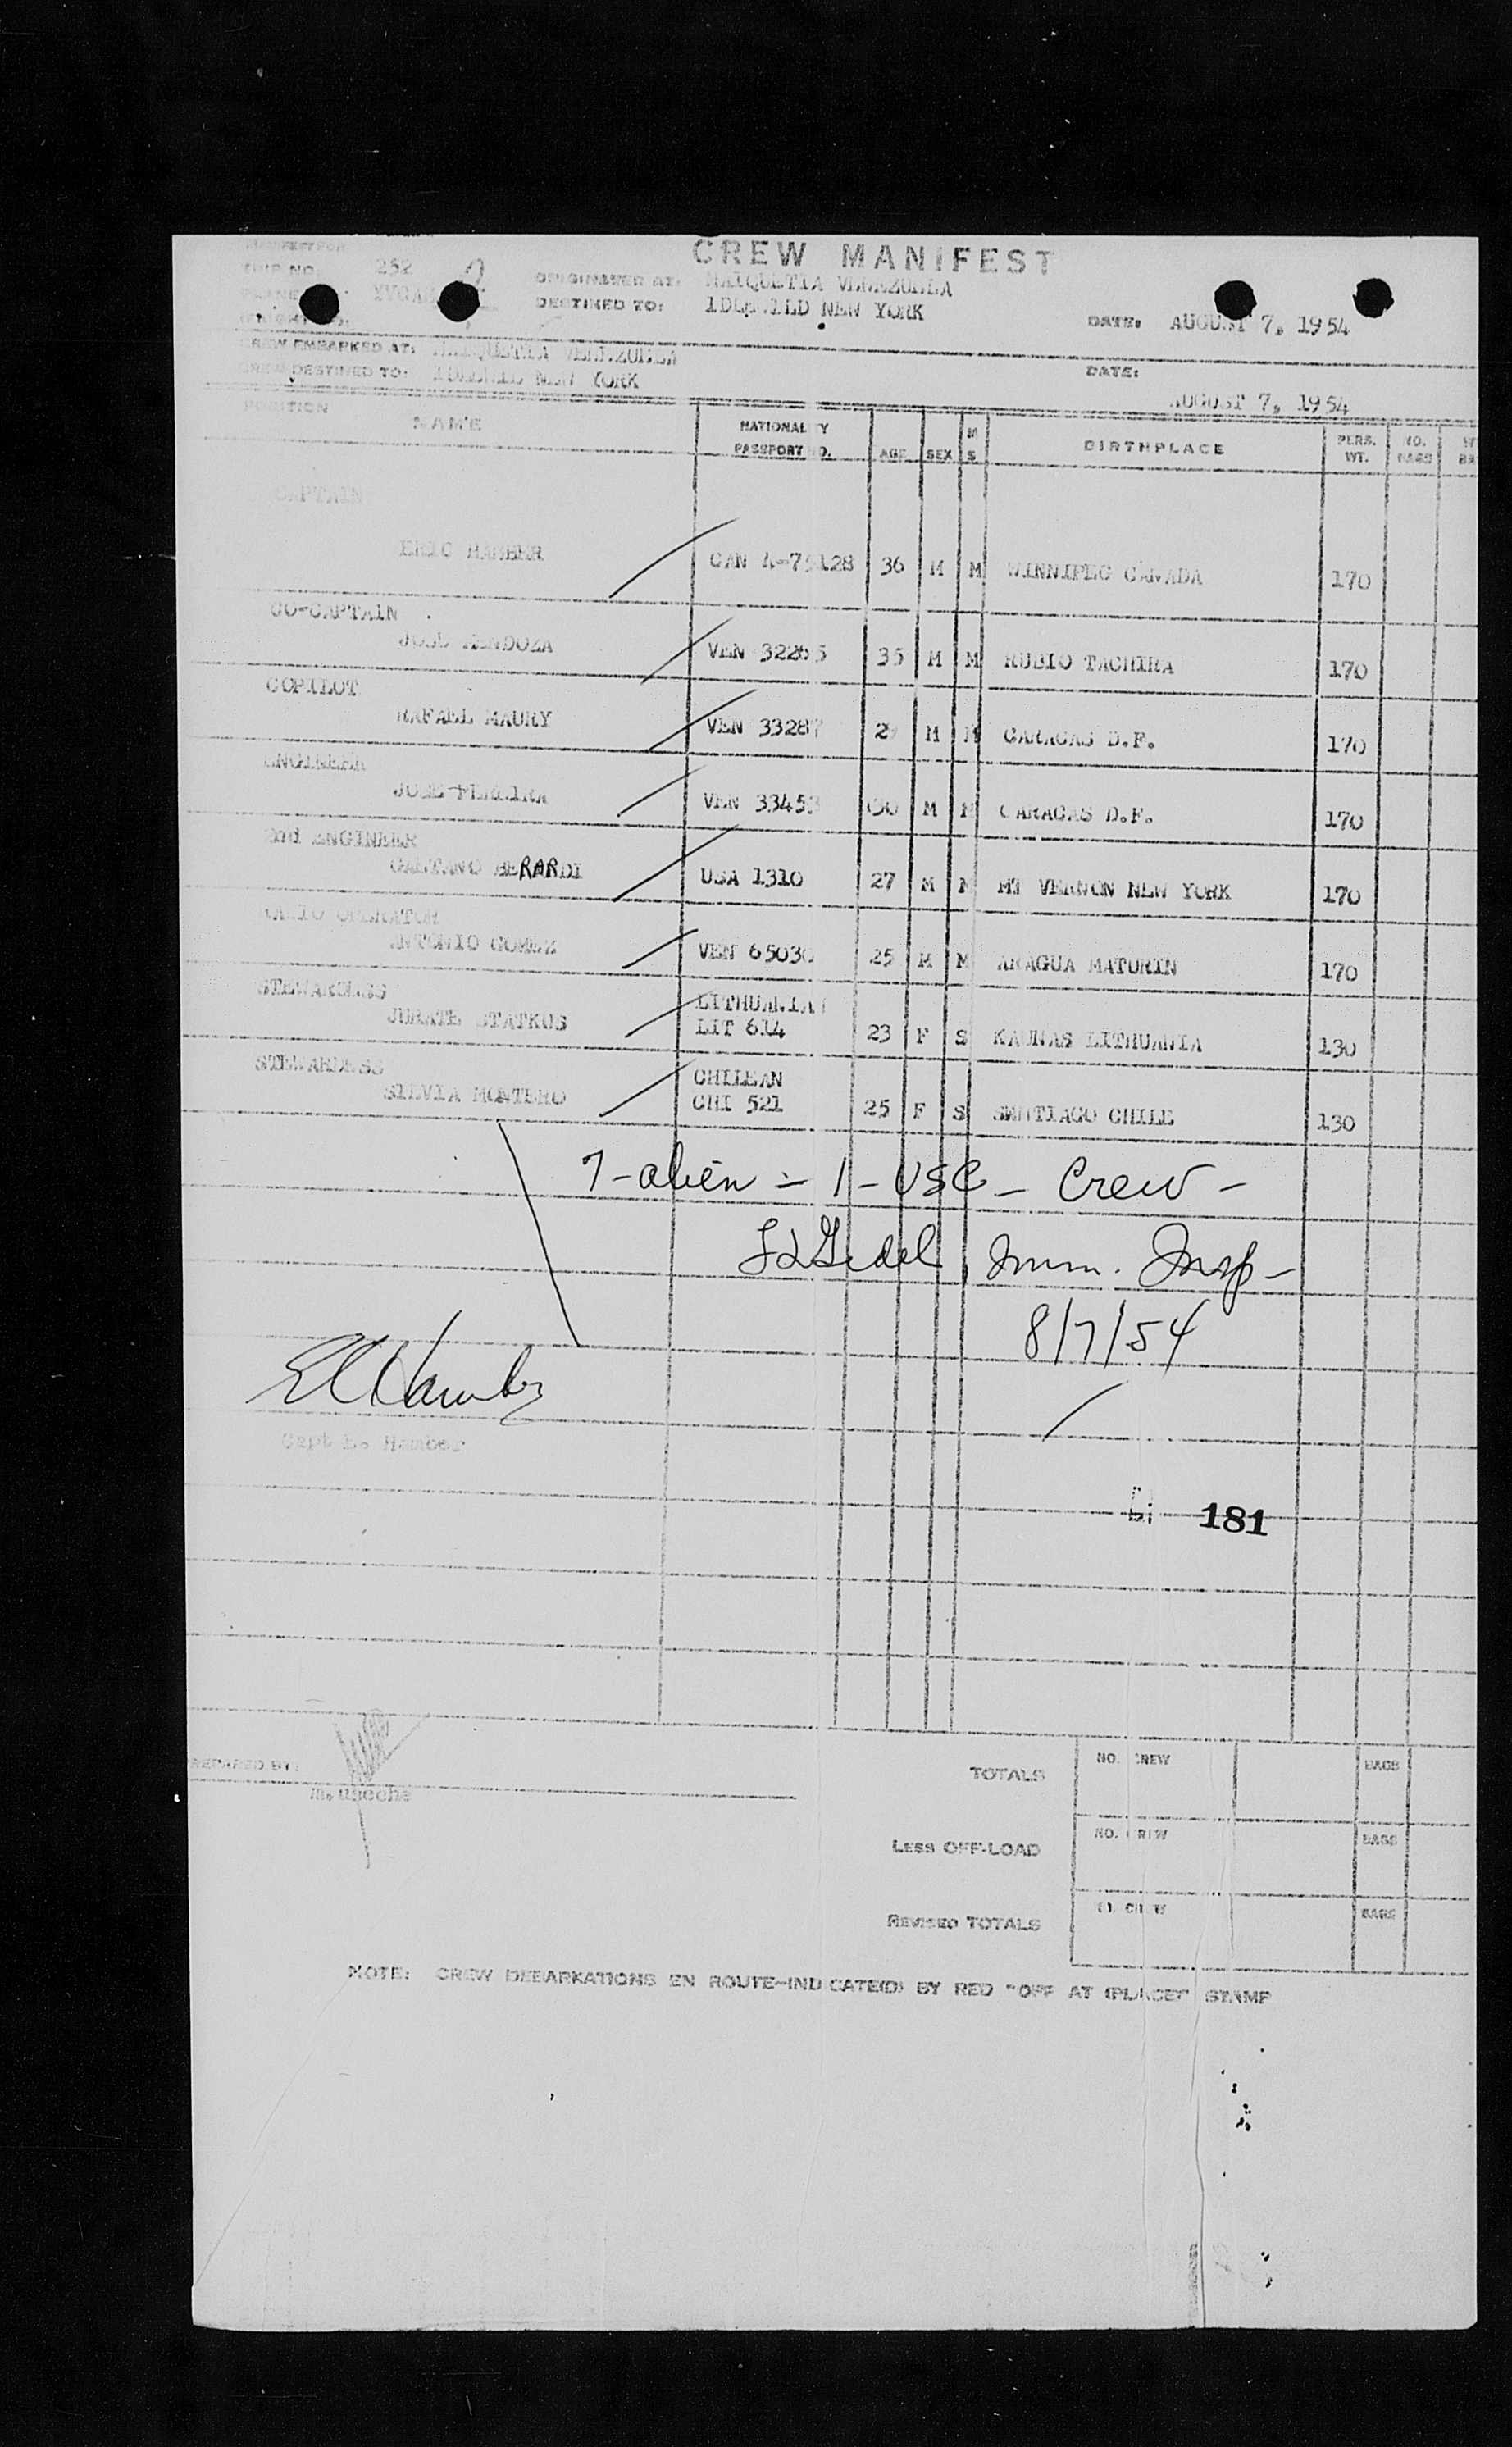 CREW MANIFEST
TRIP NO. 252
ORIGINATED AT: MAIQUETIA VENEZUELA
DESTINED TO: NEW YORK
DATE: AUGUST 7, 1954
CREW EMBARKED AT: MAIQUETIA VENEZUELA
CREW DESTINED TO: NEW YORK
DATE:
AUGUST 7, 1954
POSITION NAME NATIONALITY PASSPORT NO. AGE SEX M S BIRTHPLACE PERS. WT. NO. BAGS
CAPTAIN
ERIC HAMBER CAN 36 M M WINNIPEG CANADA 170
CO-CAPTAIN
JOSE MENDOZA VEN 32265 35 M M RUBIO TACHIRA 170
COPILOT
RAFAEL MAURY VEN 33287 M M CARACAS D.F. 170
ENGINEER
JOSE PEREIRA VEN 33453 30 M M CARACAS D.F. 170
2nd ENGINEER
GAETANO BERARDI USA 1310 27 M M MT VERNON NEW YORK 170
RADIO OPERATOR
ANTONIO GOMEZ VEN 65030 25 M M ARAGUA MATURIN 170
STEWARDESS
JURATE STATKUS LITHUANIA
LIT 614 23 F S KAUNAS LITHUANIA 130
STEWARDESS
SILVIA MONTERO CHILEAN
CHI 521 25 F S SANTIAGO CHILE 130
7-alien - 1-USC - Crew -
Imm. Insp -
8/7/54
E Hamber
Capt E. Hamber
181
PREPARED BY:
TOTALS NO. CREW BAGS
LESS OFF-LOAD NO. CREW BAGS
REVISED TOTALS NO. CREW BAGS
NOTE: CREW DEBARKATIONS EN ROUTE-INDICATE(D) BY RED "OFF AT (PLACE)" STAMP